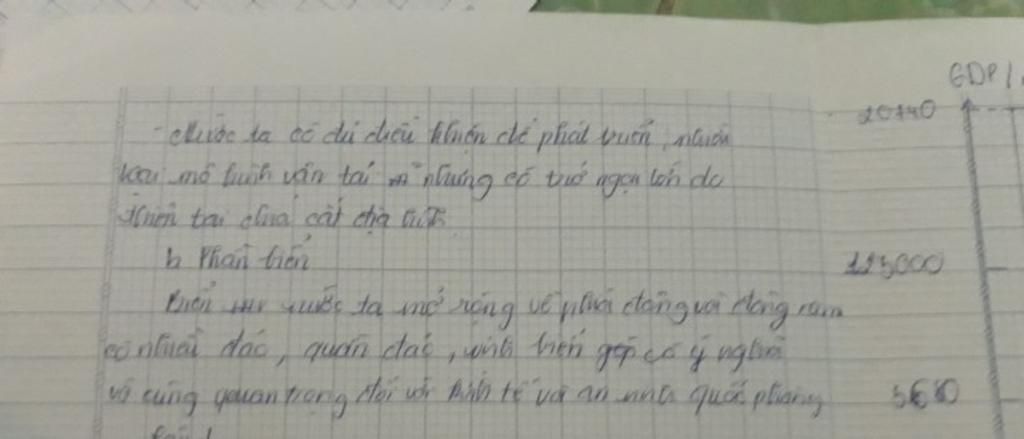 GDP/
20740
- nước ta có đủ điều kiện để phát triển, nhiều
loại mô hình vận tải nhưng có trở ngại lớn do
thiên tai chia cắt địa hình
b Phần biển
biển nước ta mở rộng về phía đông và đông nam
có nhiều đảo, quần đảo, vịnh biển góp có ý nghĩa
vô cùng quan trọng đối với kinh tế và an ninh quốc phòng
125000
5680